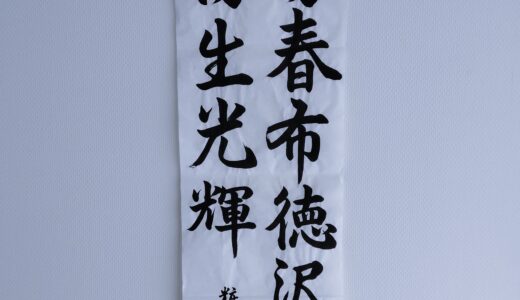 春布徳沢
生光輝